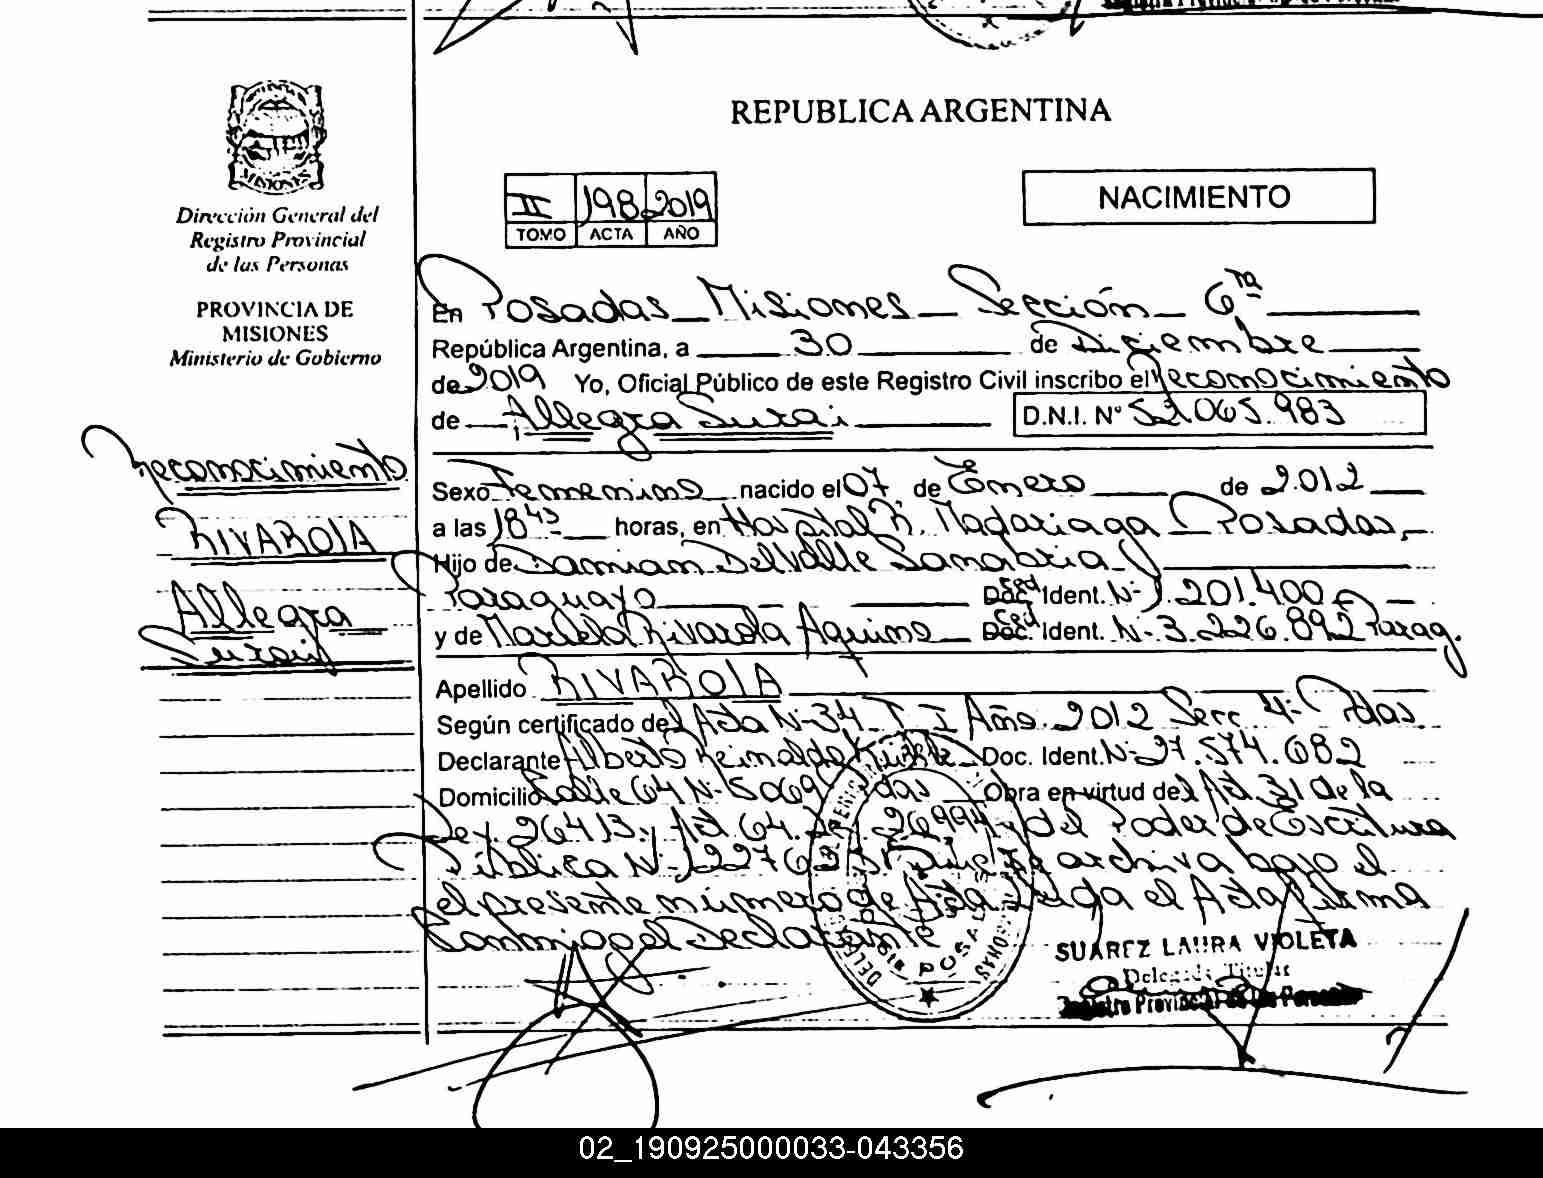 REPUBLICA ARGENTINA
MISIONES
Dirección General del
Registro Provincial
de las Personas
PROVINCIA DE
MISIONES
Ministerio de Gobierno
II 198 2019
TOMO ACTA AÑO
NACIMIENTO
En Posadas Misiones Sección 6ta
República Argentina, a 30 de Diciembre
de 2019 Yo, Oficial Público de este Registro Civil inscribo el Reconocimiento
de Allegra Surai D.N.I. N° 52.065.983
Reconocimiento
RIVAROLA
Allegra
Surai
Sexo Femenino nacido el 07 de Enero de 2.012
a las 18 45 horas, en Hospital R. Madariaga Posadas
Hijo de Damian Del Valle Sanabria
Paraguayo Ced Doc. Ident. N- 1.201.400
y de Mariela Rivarola Aquino Ced Doc. Ident. N- 3.226.892 Parag.
Apellido RIVAROLA
Según certificado del Acta N-34 T I Año 2012 Secc 4- Pdas
Declarante Alberto Reinaldo Doc. Ident. N- 27.574.682
Domicilio Calle 64 N- 5069 Pdas Obra en virtud del Art 31 de la
Ley 26413 y Art 64 26994 y del Poder de Escritura
Pública N- Que se archiva bajo el
el presente número de Acta Leida el Acta Firma
Conmigo el Declarante
POSADAS
SUAREZ LAURA VIOLETA
Delegada Titular
Registro Provincial de las Personas
02_190925000033-043356